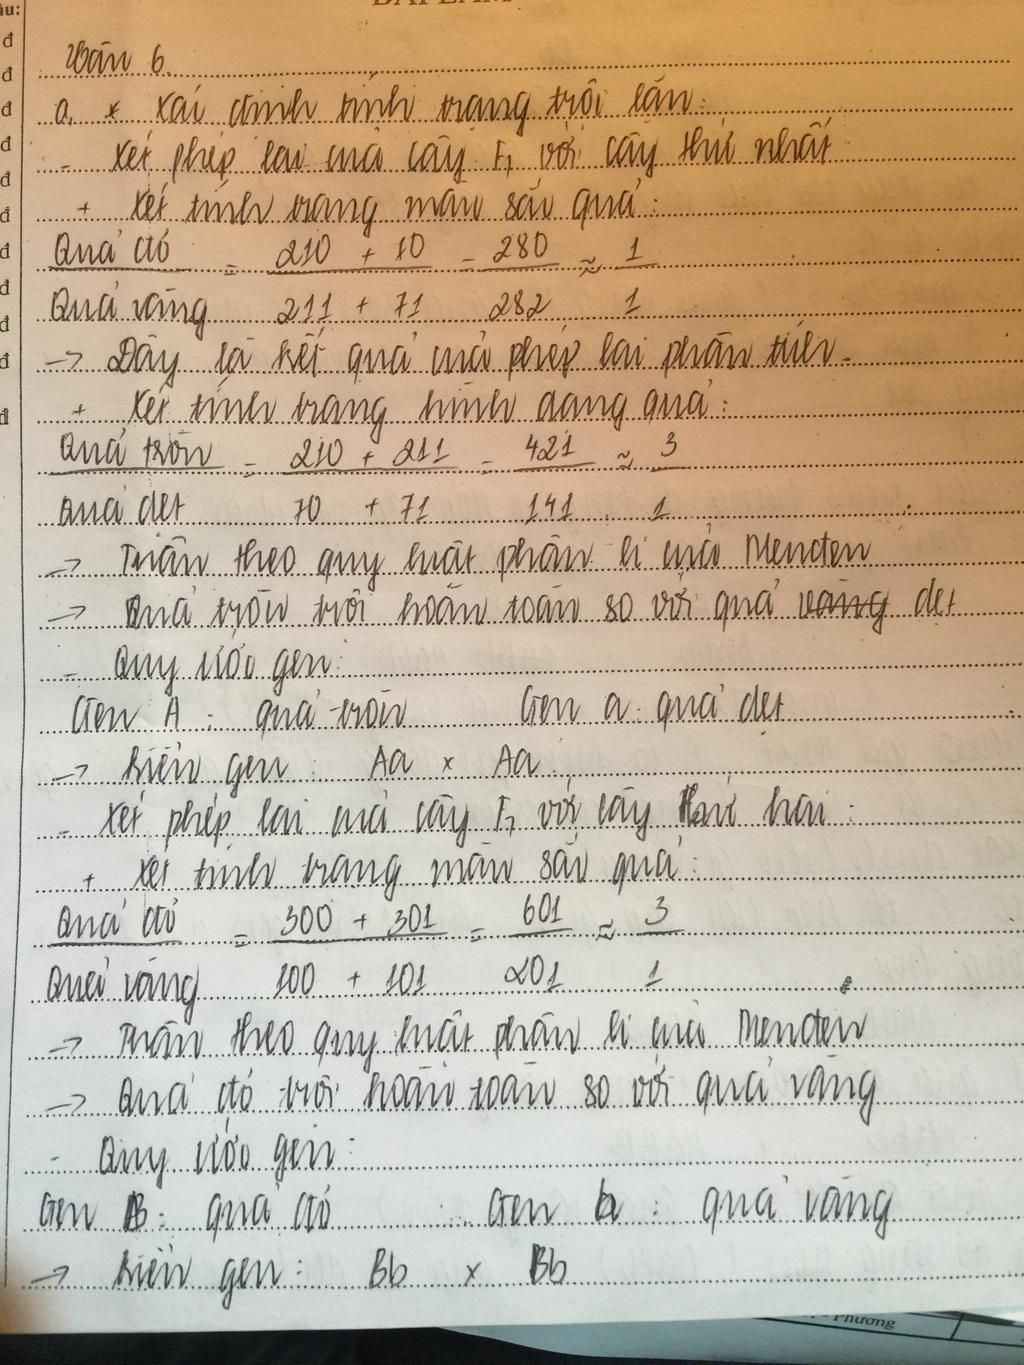 âu:
đ
đ
đ
đ
đ
đ
đ
đ
đ
đ
đ
BÀI LÀM
Câu 6.
a. * Xác định tính trạng trội lặn:
- Xét phép lai của cây F1 với cây thứ nhất
+ Xét tính trạng màu sắc quả:
Quả đỏ = 210 + 70 = 280 ≈ 1
Quả vàng 211 + 71 282 1
-> Đây là kết quả của phép lai phân tích.
+ Xét tính trạng hình dạng quả:
Quả tròn = 210 + 211 = 421 ≈ 3
Quả dẹt 70 + 71 141 1
-> Tuân theo quy luật phân li của Menđen
-> Quả tròn trội hoàn toàn so với quả vàng dẹt
- Quy ước gen:
Gen A: quả tròn Gen a: quả dẹt
-> Kiểu gen: Aa x Aa
- Xét phép lai của cây F1 với cây thứ hai:
+ Xét tính trạng màu sắc quả:
Quả đỏ = 300 + 301 = 601 ≈ 3
Quả vàng 100 + 101 201 1
-> Tuân theo quy luật phân li của Menđen
-> Quả đỏ trội hoàn toàn so với quả vàng
- Quy ước gen:
Gen B: quả đỏ Gen b: quả vàng
-> Kiểu gen: Bb x Bb
Phương